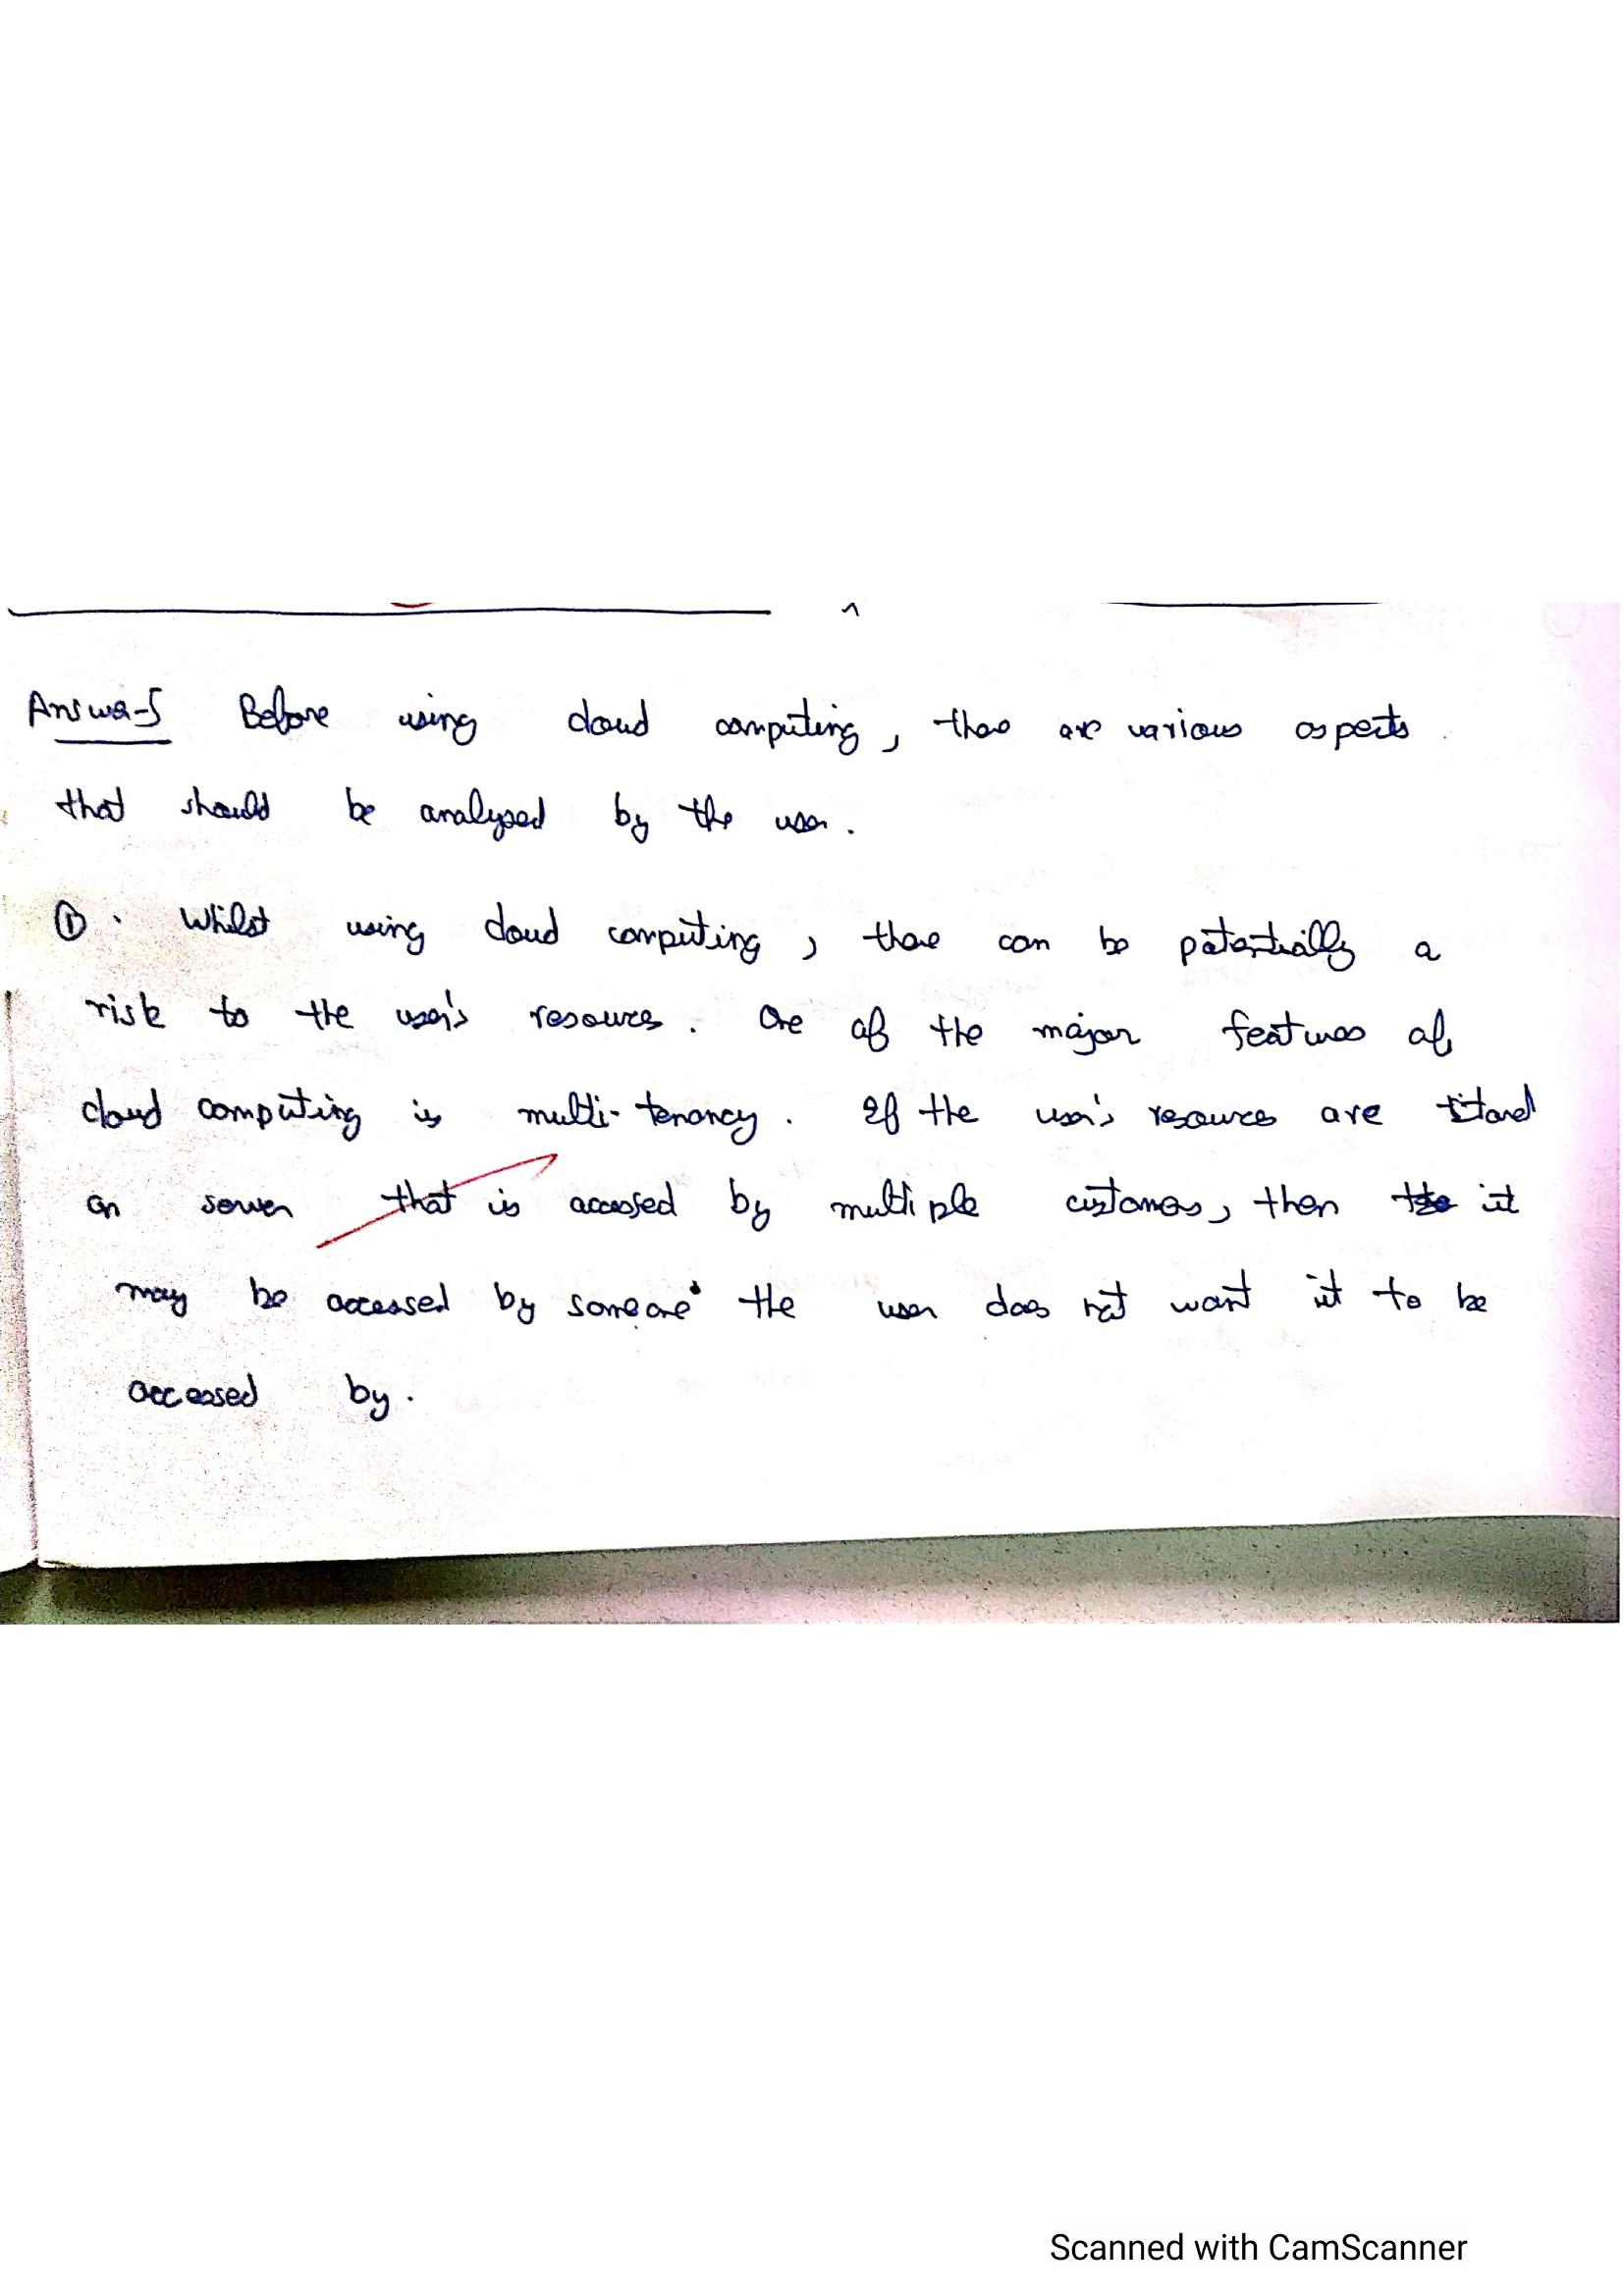 Answer-5 Before using cloud computing, there are various aspects
that should be analysed by the user.
① . Whilst using cloud computing, there can be potentially a
risk to the user's resources. One of the major features of
cloud computing is multi-tenancy. If the user's resources are stored
on server that is accessed by multiple customers, then it
may be accessed by someone the user does not want it to be
accessed by.
Scanned with CamScanner